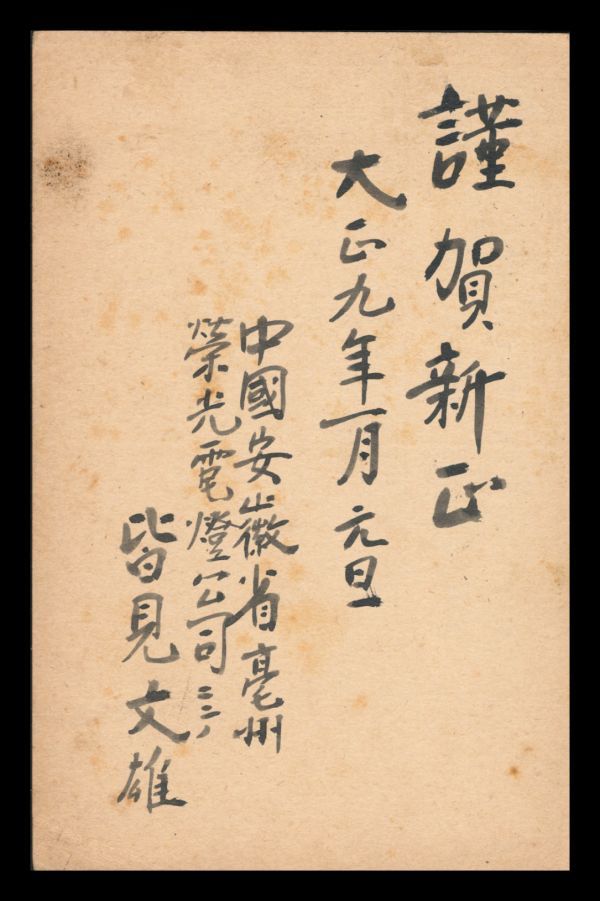 謹賀新正
大正九年一月元旦
中國安徽省亳州
榮光電燈公司ニテ
皆見文雄